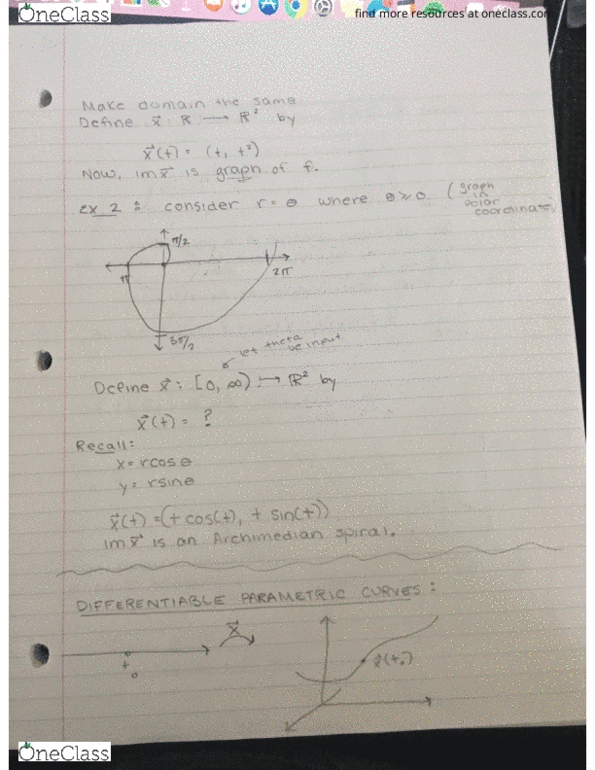 OneClass
find more resources at oneclass.com
Make domain the same
Define x⃗: ℝ → ℝ² by
x⃗(t) = (t, t²)
Now, im x⃗ is graph of f.
Ex 2: consider r = θ where θ ≥ 0. (graph in polar coordinate)
π/2
π
2π
3π/2
let theta be input
Define x⃗: [0, ∞) → ℝ² by
x⃗(t) = ?
Recall:
x = rcosθ
y = rsinθ
x⃗(t) = (t cos(t), t sin(t))
im x⃗ is an Archimedian spiral.
DIFFERENTIABLE PARAMETRIC CURVES:
x⃗
t₀
x⃗(t₀)
OneClass